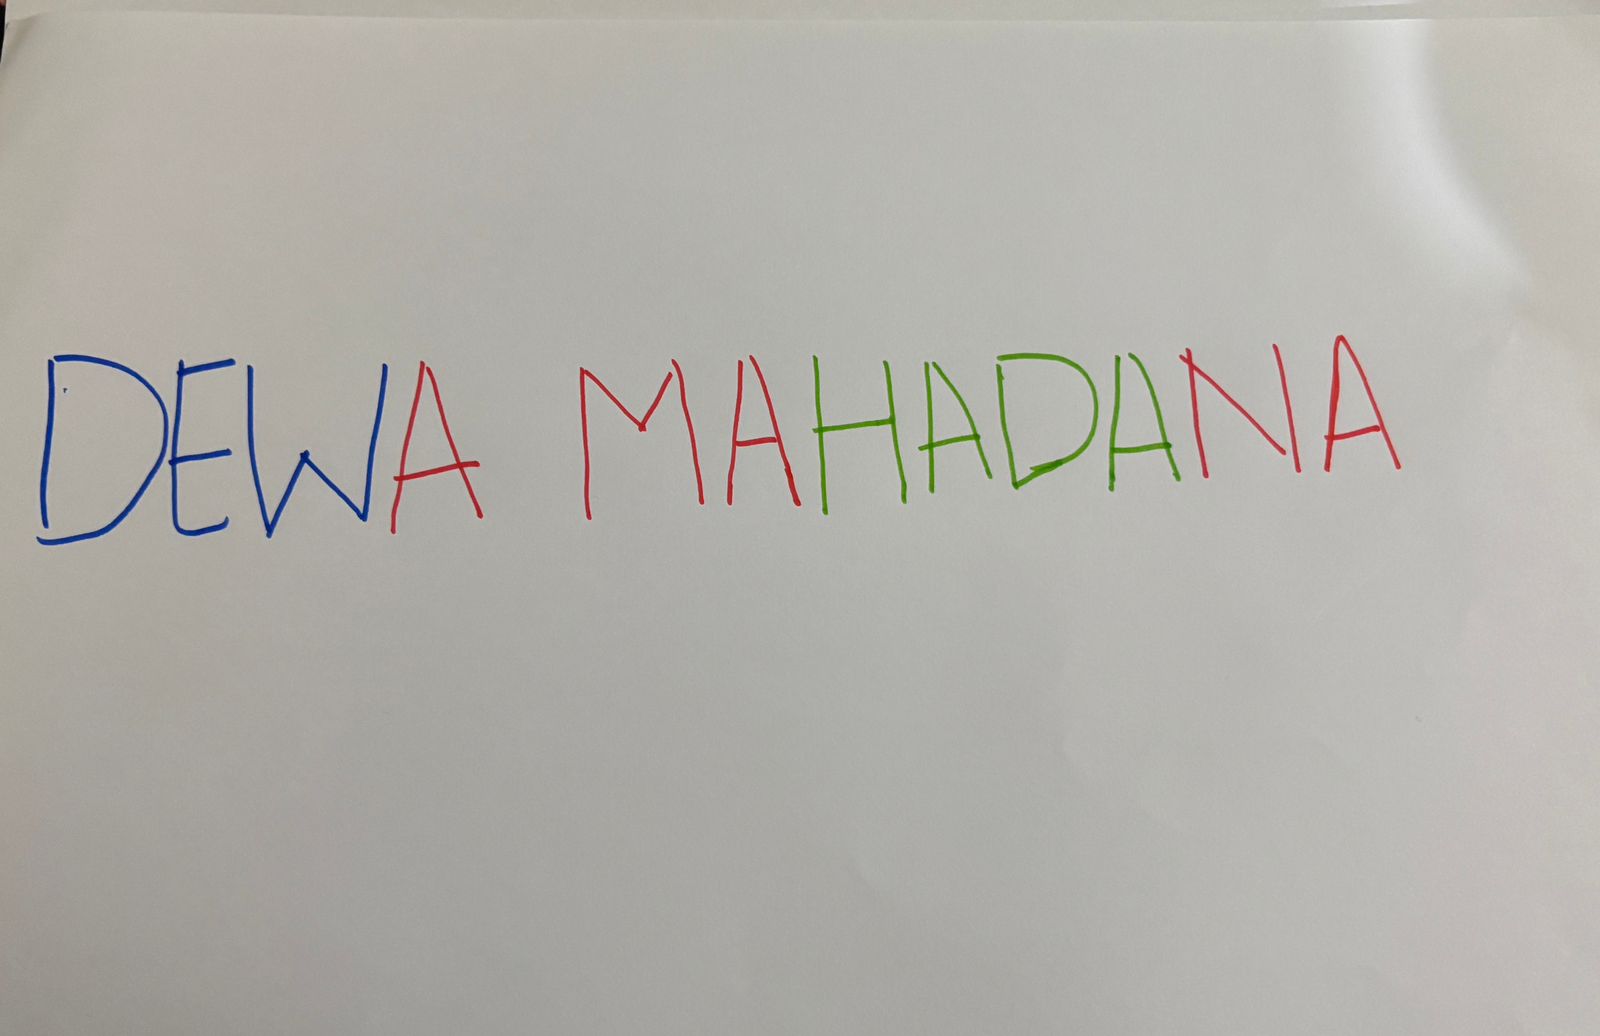 DEWA MAHADANA